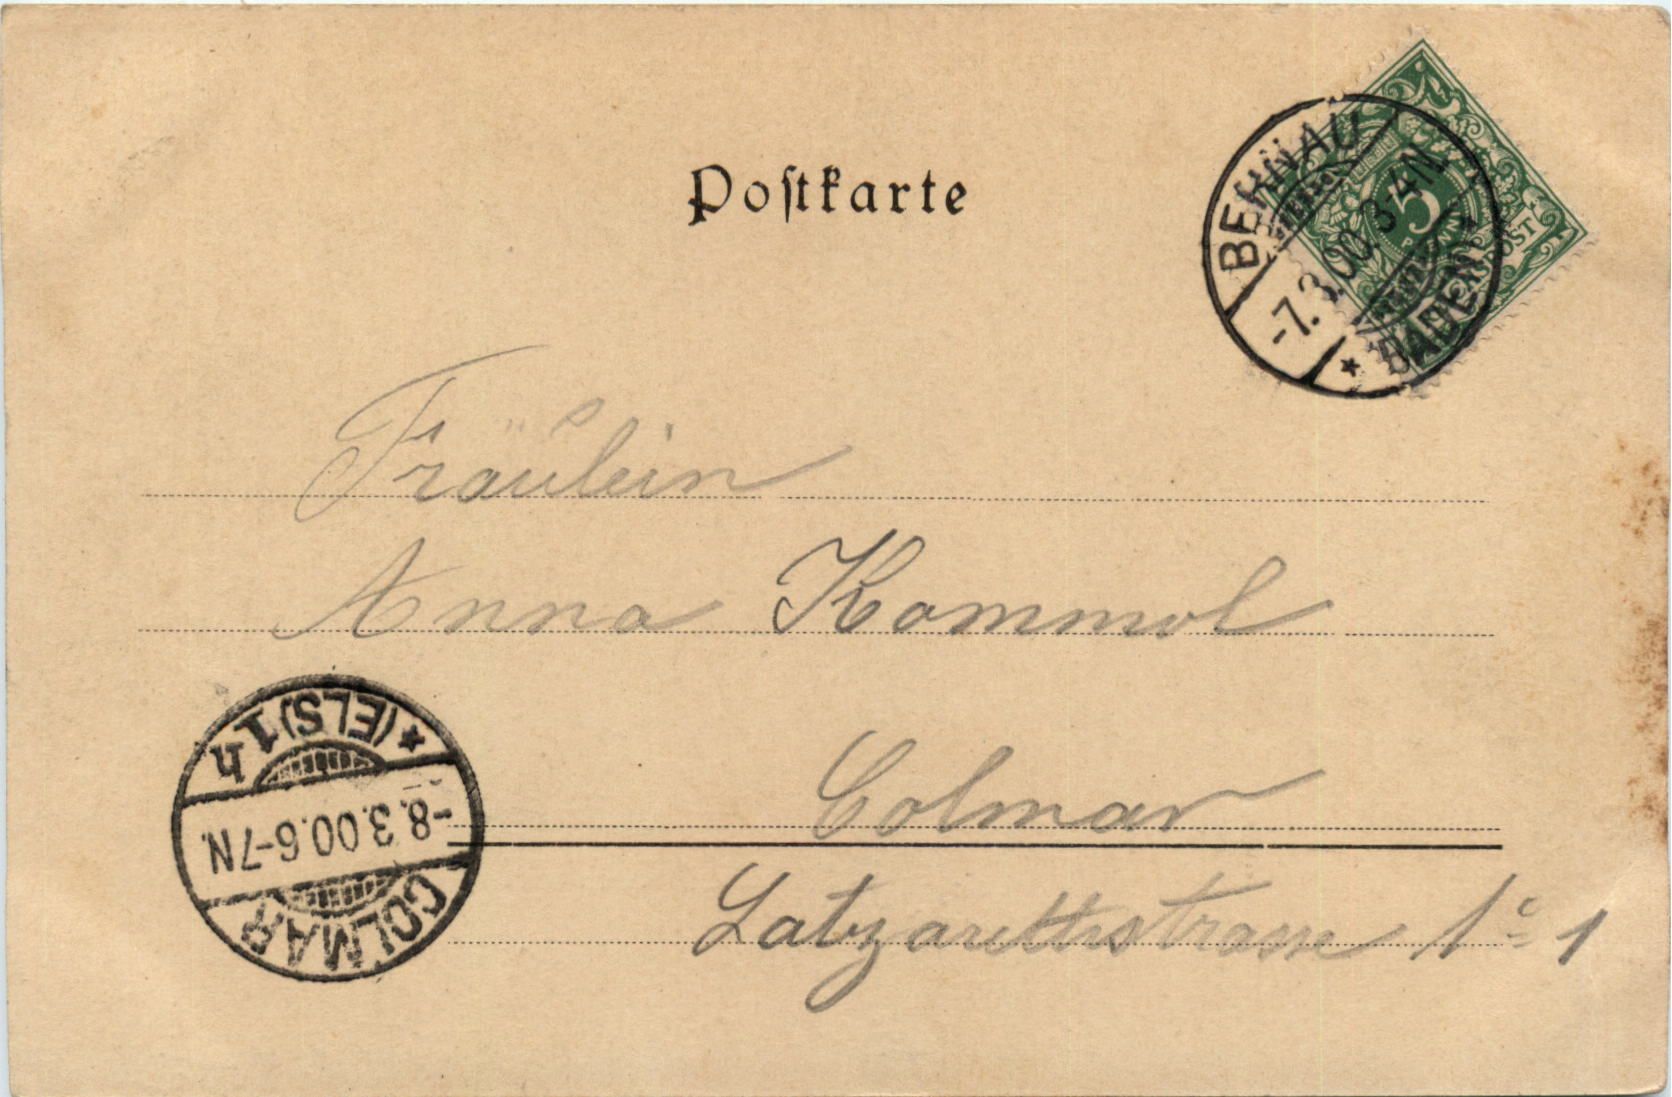 Postkarte
5
PFENNIG
POST
BERNAU
-7.3.00.3-4N.
* BADEN *
Fräulein
Anna Kammol
Colmar
Latzaretthstrasse 1
* (ELS) 1h
-8.3.00.6-7N.
COLMAR